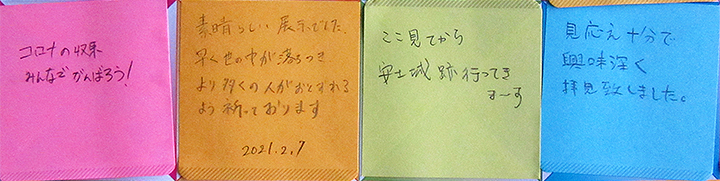 コロナの収束
みんなでがんばろう!
素晴らしい展示でした。
早く世の中が落ちつき
より多くの人がおとずれる
よう祈っております
2021.2.7
ここ見てから
安土城跡行ってき
まーす
見応え十分で
興味深く
拝見致しました。